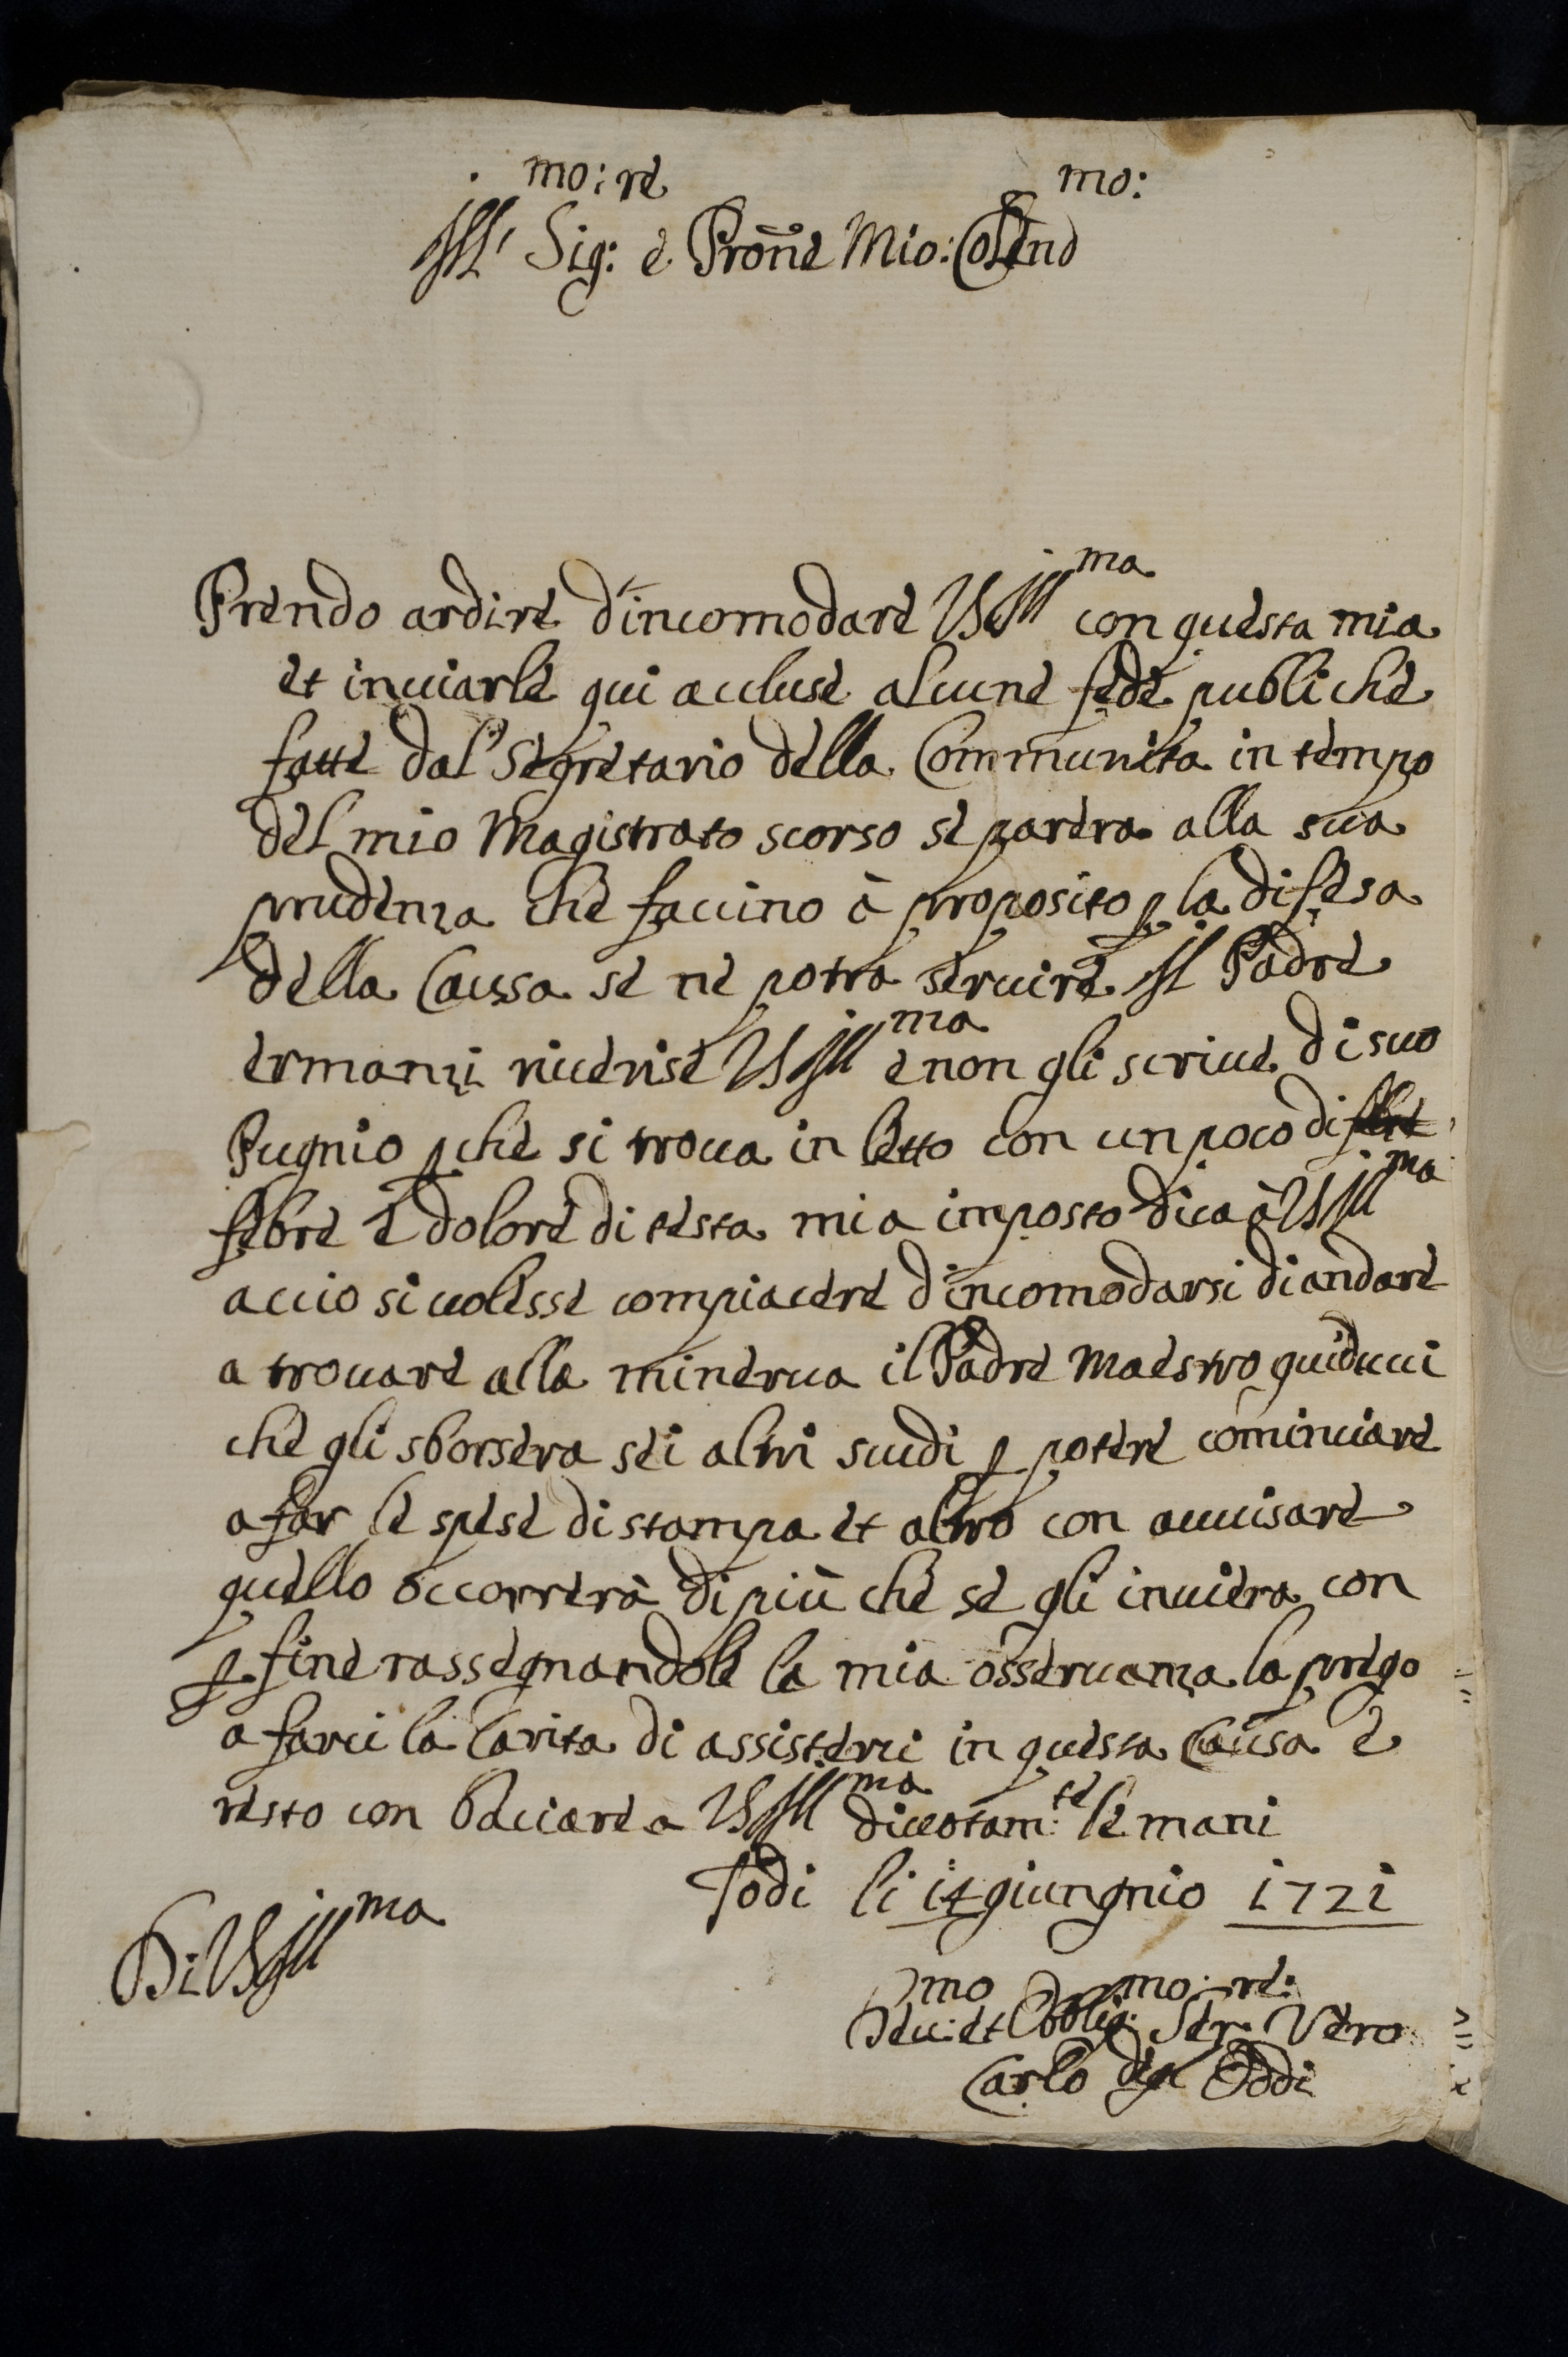 Ill:mo Sig:re e Pron̄e Mio: Colendmo:
Prendo ardire d'incomodare VS Illma con questa mia
et inuiarle qui accluse alcune fede publiche
fatte dal Segretario della Communita in tempo
del mio Magistrato scorso se parera alla sua
prudenza che faccino à proposito p la difesa
della Caussa se ne potra seruire Il Padre
ermanzi riuerise VS Illma e non gli scriue di suo
Pugnio pche si troua in letto con un poco di febre
febre e dolore di testa mia imposto dica à VS Illma
accio si uolesse compiacere d'incomodarsi di andare
a trouare alla minerua il Padre Maestro guiducci
che gli sborsera sei altri scudi p potere cominciare
a far le spese di stampa et altro con auuisare
quello occorrerà di più che se gli inuiera con
p fine rassegnandole la mia osseruanza la prego
a farci la Carita di assisterci in questa Causa e
resto con baciare a VS Illma diuotam:te le mani
Todi li 14 giungnio 1721
Di VS Illma
Deu:mo et Obblig:mo Ser:re Vero
Carlo degl Oddi